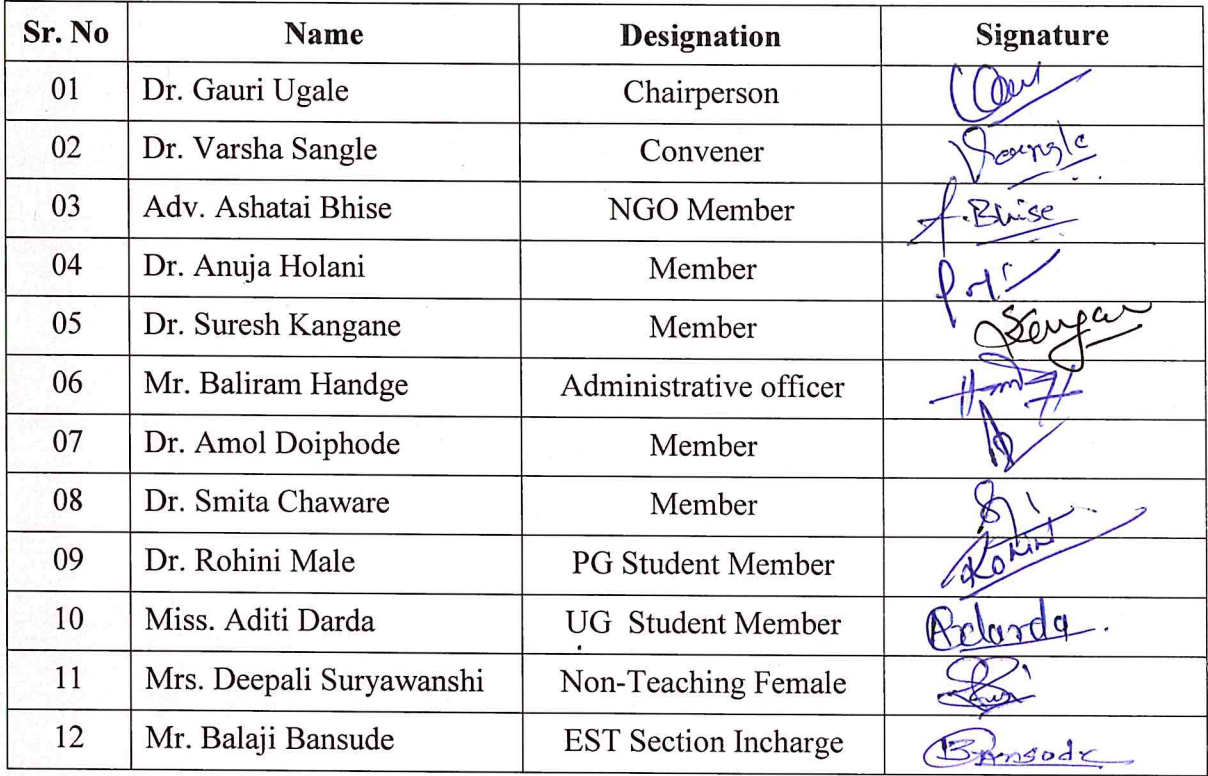 Sr. No Name Designation Signature
01 Dr. Gauri Ugale Chairperson
02 Dr. Varsha Sangle Convener Vsangle
03 Adv. Ashatai Bhise NGO Member A.Bhise
04 Dr. Anuja Holani Member
05 Dr. Suresh Kangane Member
06 Mr. Baliram Handge Administrative officer
07 Dr. Amol Doiphode Member
08 Dr. Smita Chaware Member
09 Dr. Rohini Male PG Student Member Rohini
10 Miss. Aditi Darda UG Student Member Adarda.
11 Mrs. Deepali Suryawanshi Non-Teaching Female
12 Mr. Balaji Bansude EST Section Incharge Bansode